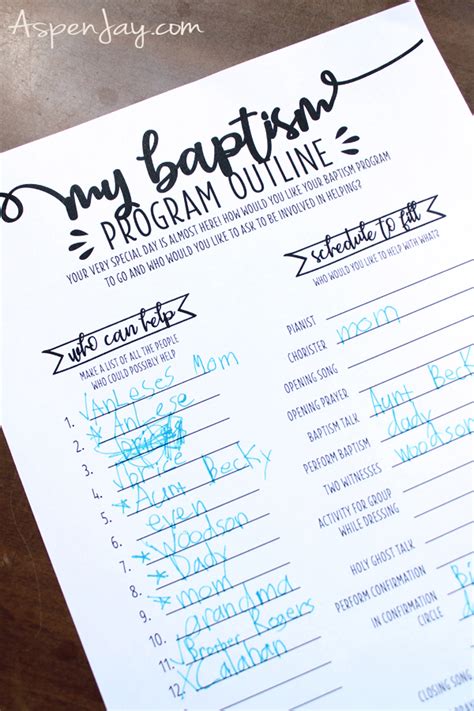 AspenJay.com
my baptism
PROGRAM OUTLINE
YOUR VERY SPECIAL DAY IS ALMOST HERE! HOW WOULD YOU LIKE YOUR BAPTISM PROGRAM
TO GO AND WHO WOULD YOU LIKE TO ASK TO BE INVOLVED IN HELPING?
who can help
MAKE A LIST OF ALL THE PEOPLE
WHO COULD POSSIBLY HELP
1. VAnLeses Mom
2. AnLese
3.
4. brice
5. Aunt Becky
6. even
7. Woodson
8. Dady
9. mom
10. grandma
11. Brother Rogers
12. Calahan
schedule to fill
WHO WOULD YOU LIKE TO HELP WITH WHAT?
PIANIST
CHORISTER mom
OPENING SONG
OPENING PRAYER
BAPTISM TALK Aunt Becky
PERFORM BAPTISM dady
TWO WITNESSES Woodson
ACTIVITY FOR GROUP
WHILE DRESSING
HOLY GHOST TALK
PERFORM CONFIRMATION
IN CONFIRMATION
CIRCLE
PROGRAM SONG